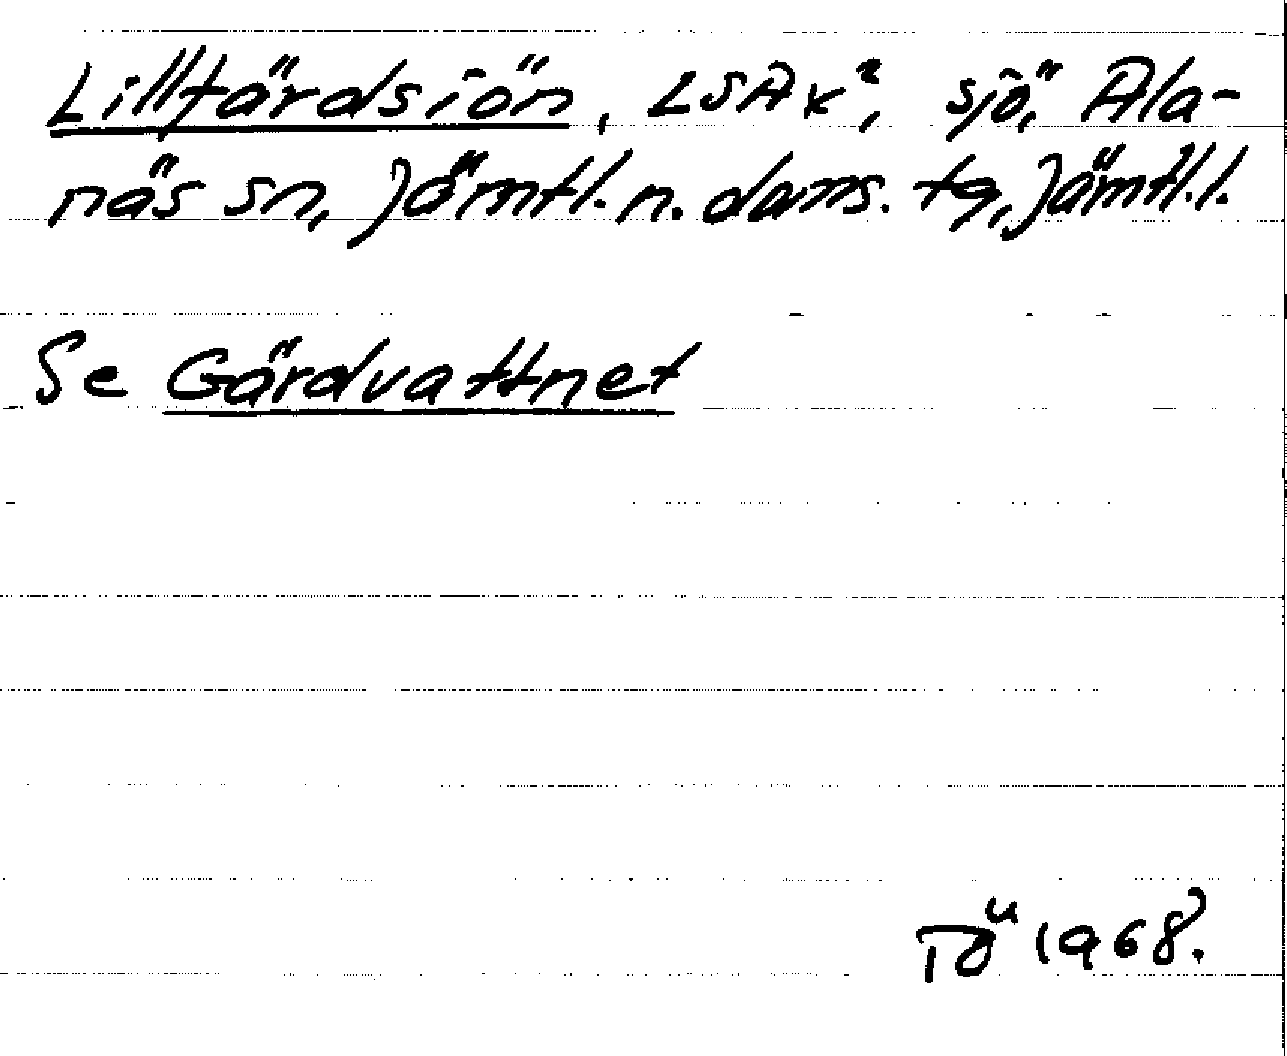 Lillfärdsiön, LSAK², sjö, Ala-
näs sn, Jämtl. n. doms. tg, Jämtl. l.
Se Gärdvattnet
TÖ 1968.